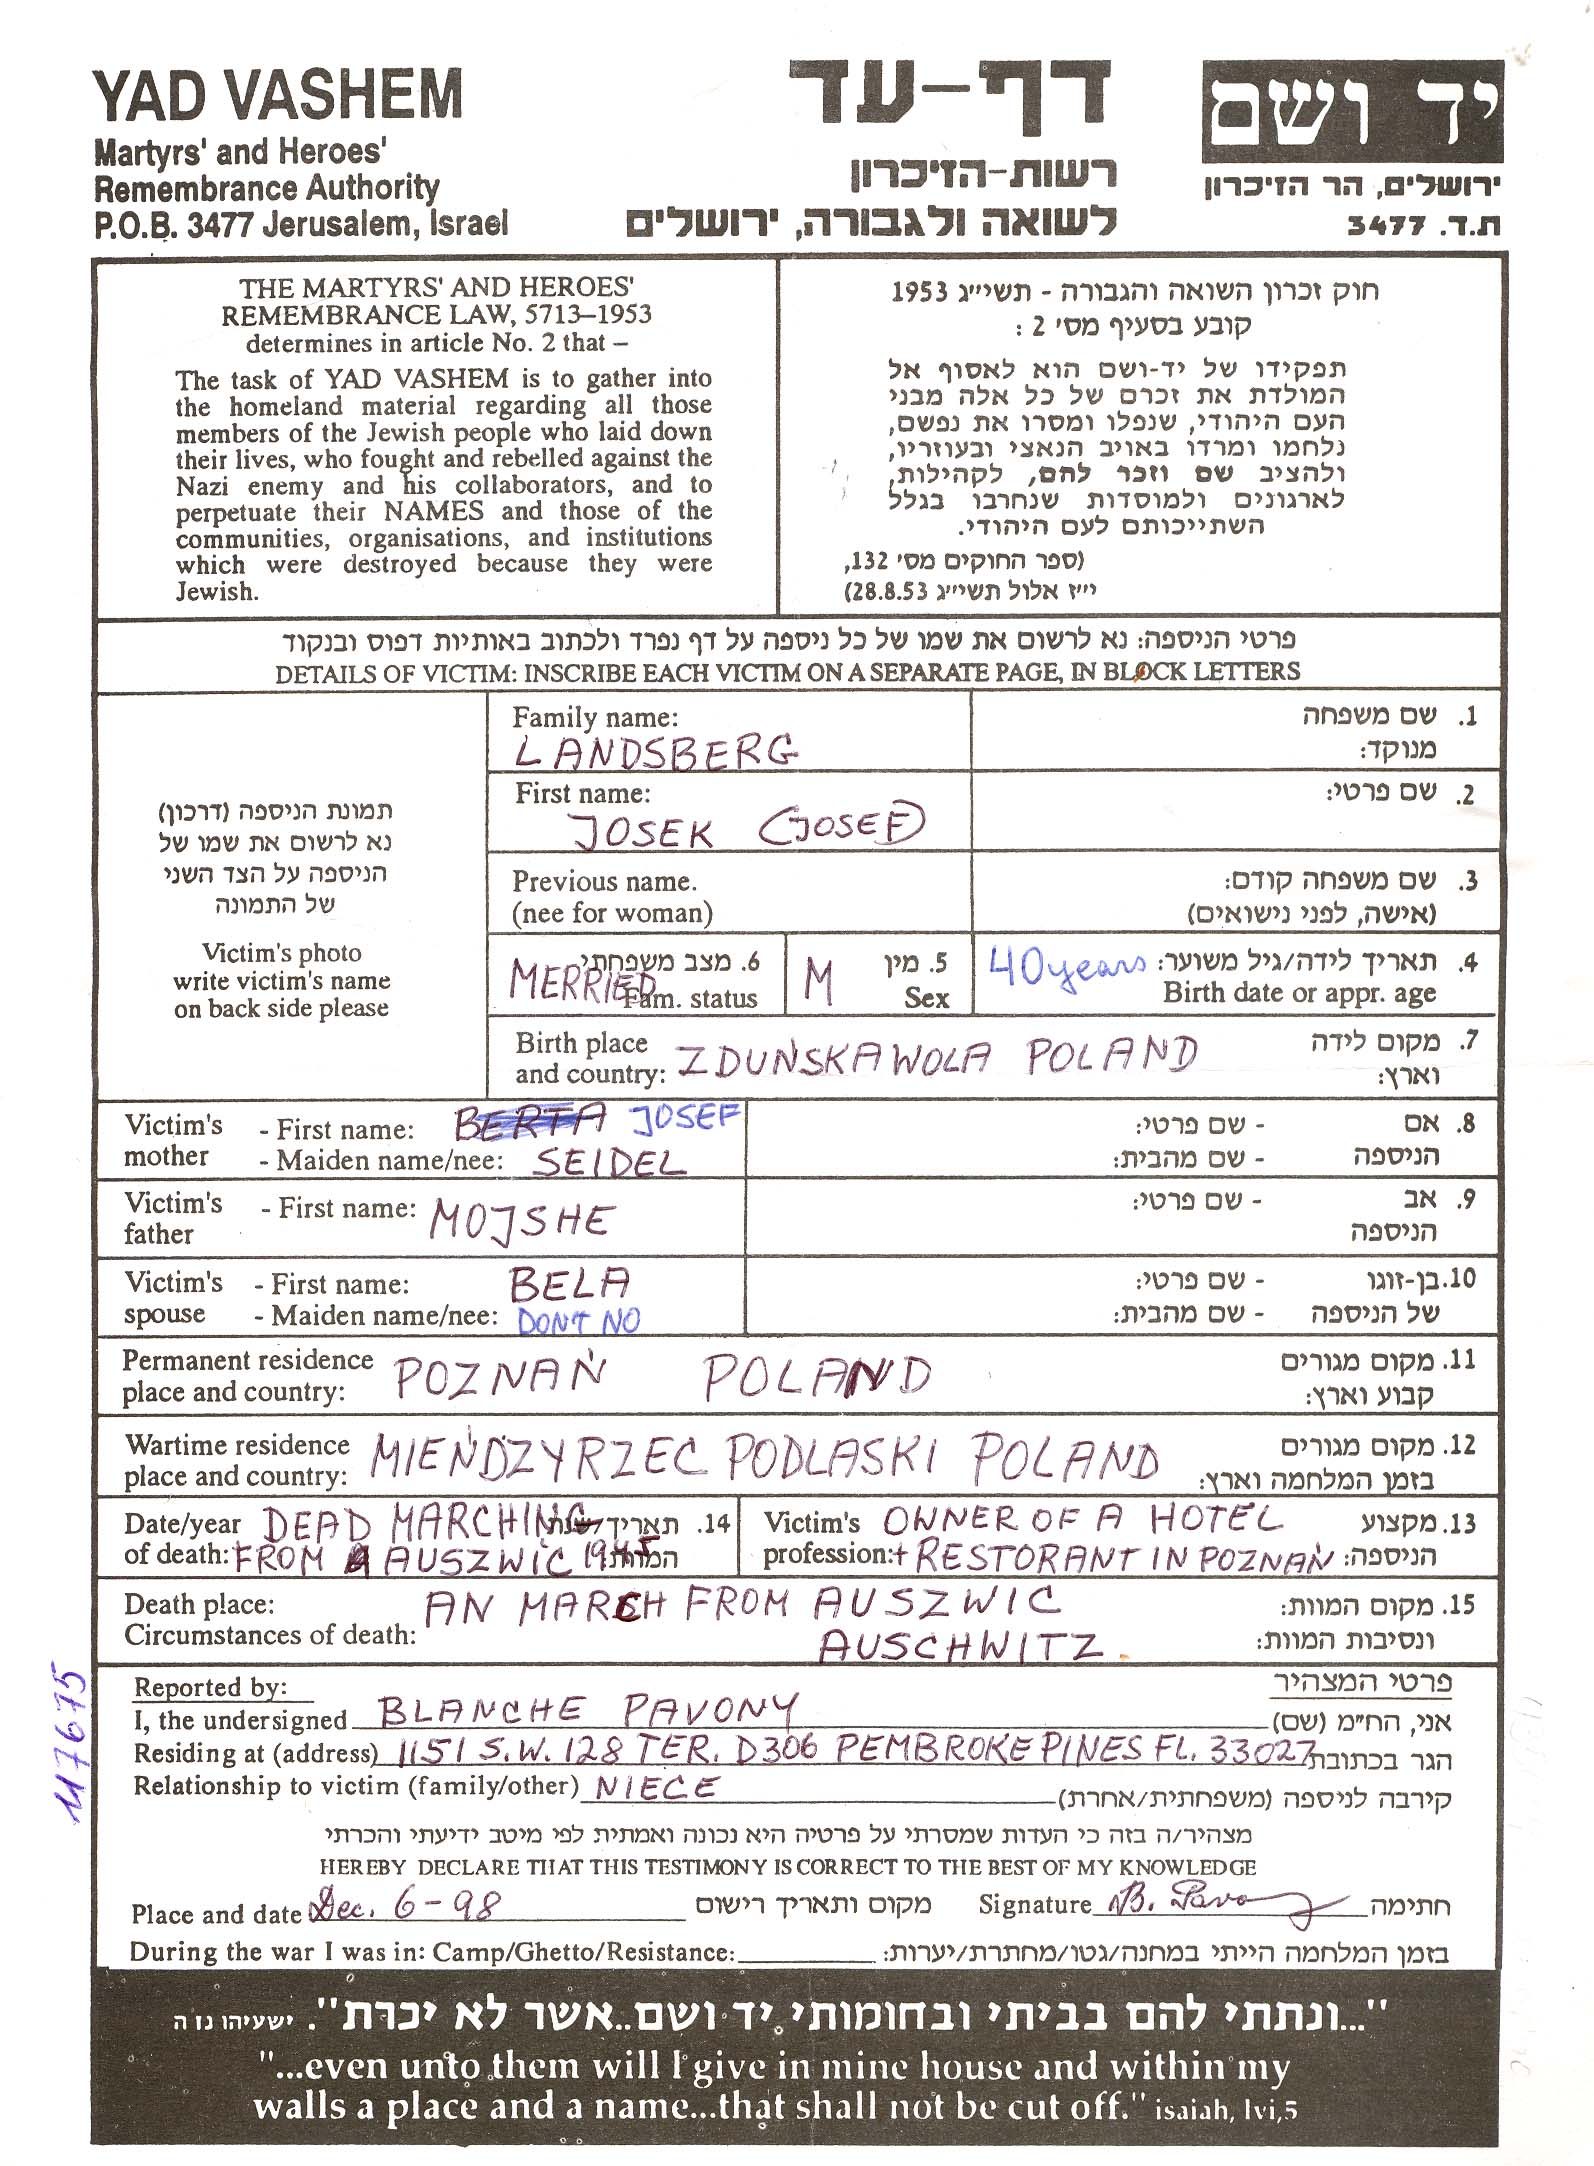 YAD VASHEM
Martyrs' and Heroes'
Remembrance Authority
P.O.B. 3477 Jerusalem, Israel
דף-עד
רשות-הזיכרון
לשואה ולגבורה, ירושלים
יד ושם
ירושלים, הר הזיכרון
ת.ד. 3477
THE MARTYRS' AND HEROES'
REMEMBRANCE LAW, 5713–1953
determines in article No. 2 that –
The task of YAD VASHEM is to gather into
the homeland material regarding all those
members of the Jewish people who laid down
their lives, who fought and rebelled against the
Nazi enemy and his collaborators, and to
perpetuate their NAMES and those of the
communities, organisations, and institutions
which were destroyed because they were
Jewish.
חוק זכרון השואה והגבורה - תשי״ג 1953
קובע בסעיף מס׳ 2 :
תפקידו של יד-ושם הוא לאסוף אל
המולדת את זכרם של כל אלה מבני
העם היהודי, שנפלו ומסרו את נפשם,
נלחמו ומרדו באויב הנאצי ובעוזריו,
ולהציב שם וזכר להם, לקהילות,
לארגונים ולמוסדות שנחרבו בגלל
השתייכותם לעם היהודי.
(ספר החוקים מס׳ 132,
י״ז אלול תשי״ג 28.8.53)
פרטי הניספה: נא לרשום את שמו של כל ניספה על דף נפרד ולכתוב באותיות דפוס ובנקוד
DETAILS OF VICTIM: INSCRIBE EACH VICTIM ON A SEPARATE PAGE, IN BLOCK LETTERS
תמונת הניספה (דרכון)
נא לרשום את שמו של
הניספה על הצד השני
של התמונה
Victim's photo
write victim's name
on back side please
Family name: 1. שם משפחה
LANDSBERG מנוקד:
First name: 2. שם פרטי:
JOSEK (JOSEF)
Previous name. 3. שם משפחה קודם:
(nee for woman) (אישה, לפני נישואים)
MERRIED 6. מצב משפחתי M 5. מין 40 years 4. תאריך לידה/גיל משוער:
Fam. status Sex Birth date or appr. age
Birth place ZDUŃSKA WOLA POLAND 7. מקום לידה
and country: וארץ:
Victim's - First name: BERTA JOSEF - שם פרטי: 8. אם
mother - Maiden name/nee: SEIDEL - שם מהבית: הניספה
Victim's - First name: MOJSHE - שם פרטי: 9. אב
father הניספה
Victim's - First name: BELA - שם פרטי: 10. בן-זוגו
spouse - Maiden name/nee: DON'T NO - שם מהבית: של הניספה
Permanent residence POZNAŃ POLAND 11. מקום מגורים
place and country: קבוע וארץ:
Wartime residence MIENDZYRZEC PODLASKI POLAND 12. מקום מגורים
place and country: בזמן המלחמה וארץ:
Date/year DEAD MARCHING 14. תאריך/שנת Victim's OWNER OF A HOTEL 13. מקצוע
of death: FROM AUSZWIC 1945 המוות profession: + RESTORANT IN POZNAŃ הניספה:
Death place: AN MARCH FROM AUSZWIC 15. מקום המוות:
Circumstances of death: AUSCHWITZ. ונסיבות המוות:
117675
Reported by: פרטי המצהיר
I, the undersigned BLANCHE PAVONY אני, הח״מ (שם)
Residing at (address) 1151 S.W. 128 TER. D306 PEMBROKE PINES FL. 33027 הגר בכתובת
Relationship to victim (family/other) NIECE קירבה לניספה (משפחתית/אחרת)
מצהיר/ה בזה כי העדות שמסרתי על פרטיה היא נכונה ואמתית לפי מיטב ידיעתי והכרתי
HEREBY DECLARE THAT THIS TESTIMONY IS CORRECT TO THE BEST OF MY KNOWLEDGE
Place and date Dec. 6-98 מקום ותאריך רישום Signature B. Pavony חתימה
During the war I was in: Camp/Ghetto/Resistance: בזמן המלחמה הייתי במחנה/גטו/מחתרת/יערות:
"...ונתתי להם בביתי ובחומותי יד ושם..אשר לא יכרת". ישעיהו נו ה
"...even unto them will I give in mine house and within my
walls a place and a name...that shall not be cut off." isaiah, lvi,5